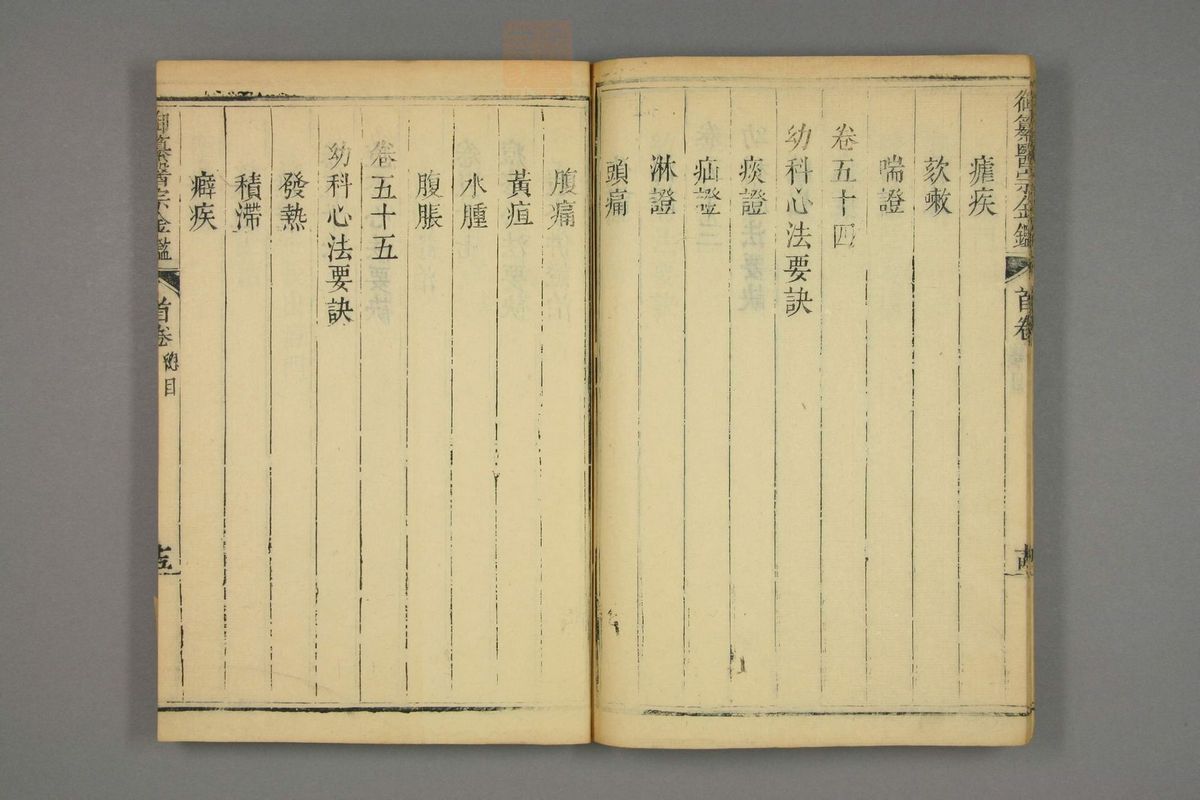 御纂醫宗金鑑
首卷
瘧疾
欬嗽
喘證
卷五十四
幼科心法要訣
痰證
疝證
淋證
頭痛
腹痛
黃疸
水腫
腹脹
卷五十五
幼科心法要訣
發熱
積滯
癖疾
御纂醫宗金鑑
首卷 總目